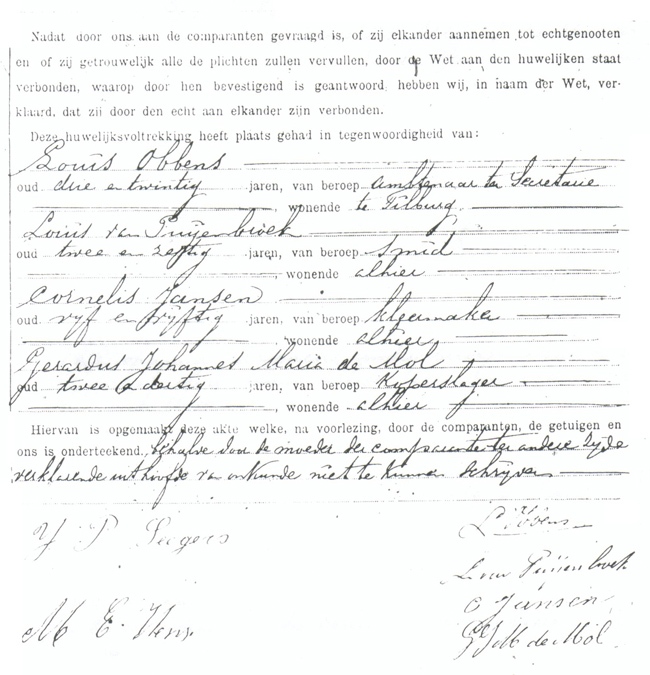 Nadat door ons aan de comparanten gevraagd is, of zij elkander aannemen tot echtgenooten
en of zij getrouwelijk alle de plichten zullen vervullen, door de Wet aan den huwelijken staat
verbonden, waarop door hen bevestigend is geantwoord, hebben wij, in naam der Wet, ver-
klaard, dat zij door den echt aan elkander zijn verbonden.
Deze huwelijksvoltrekking heeft plaats gehad in tegenwoordigheid van:
Louis Obbens
oud drie en twintig jaren, van beroep ambtenaar ter Secretarie
, wonende te Tilburg
Louis van Puijenbroek
oud twee en zestig jaren, van beroep smid
, wonende alhier
Cornelis Jansen
oud vyf en vyftig jaren, van beroep kleermaker
, wonende alhier
Gerardus Johannes Maria de Mol
oud twee en dertig jaren, van beroep Koperslager
, wonende alhier
Hiervan is opgemaakt deze akte welke, na voorlezing, door de comparanten, de getuigen en
ons is onderteekend, behalve door de moeder der comparante ter andere zyde
verklarende uit hoofde van onkunde niet te kunnen schryven
P Seegers
L Obbens
L. van Puijenbroek
C Jansen
M E.
G J M de Mol